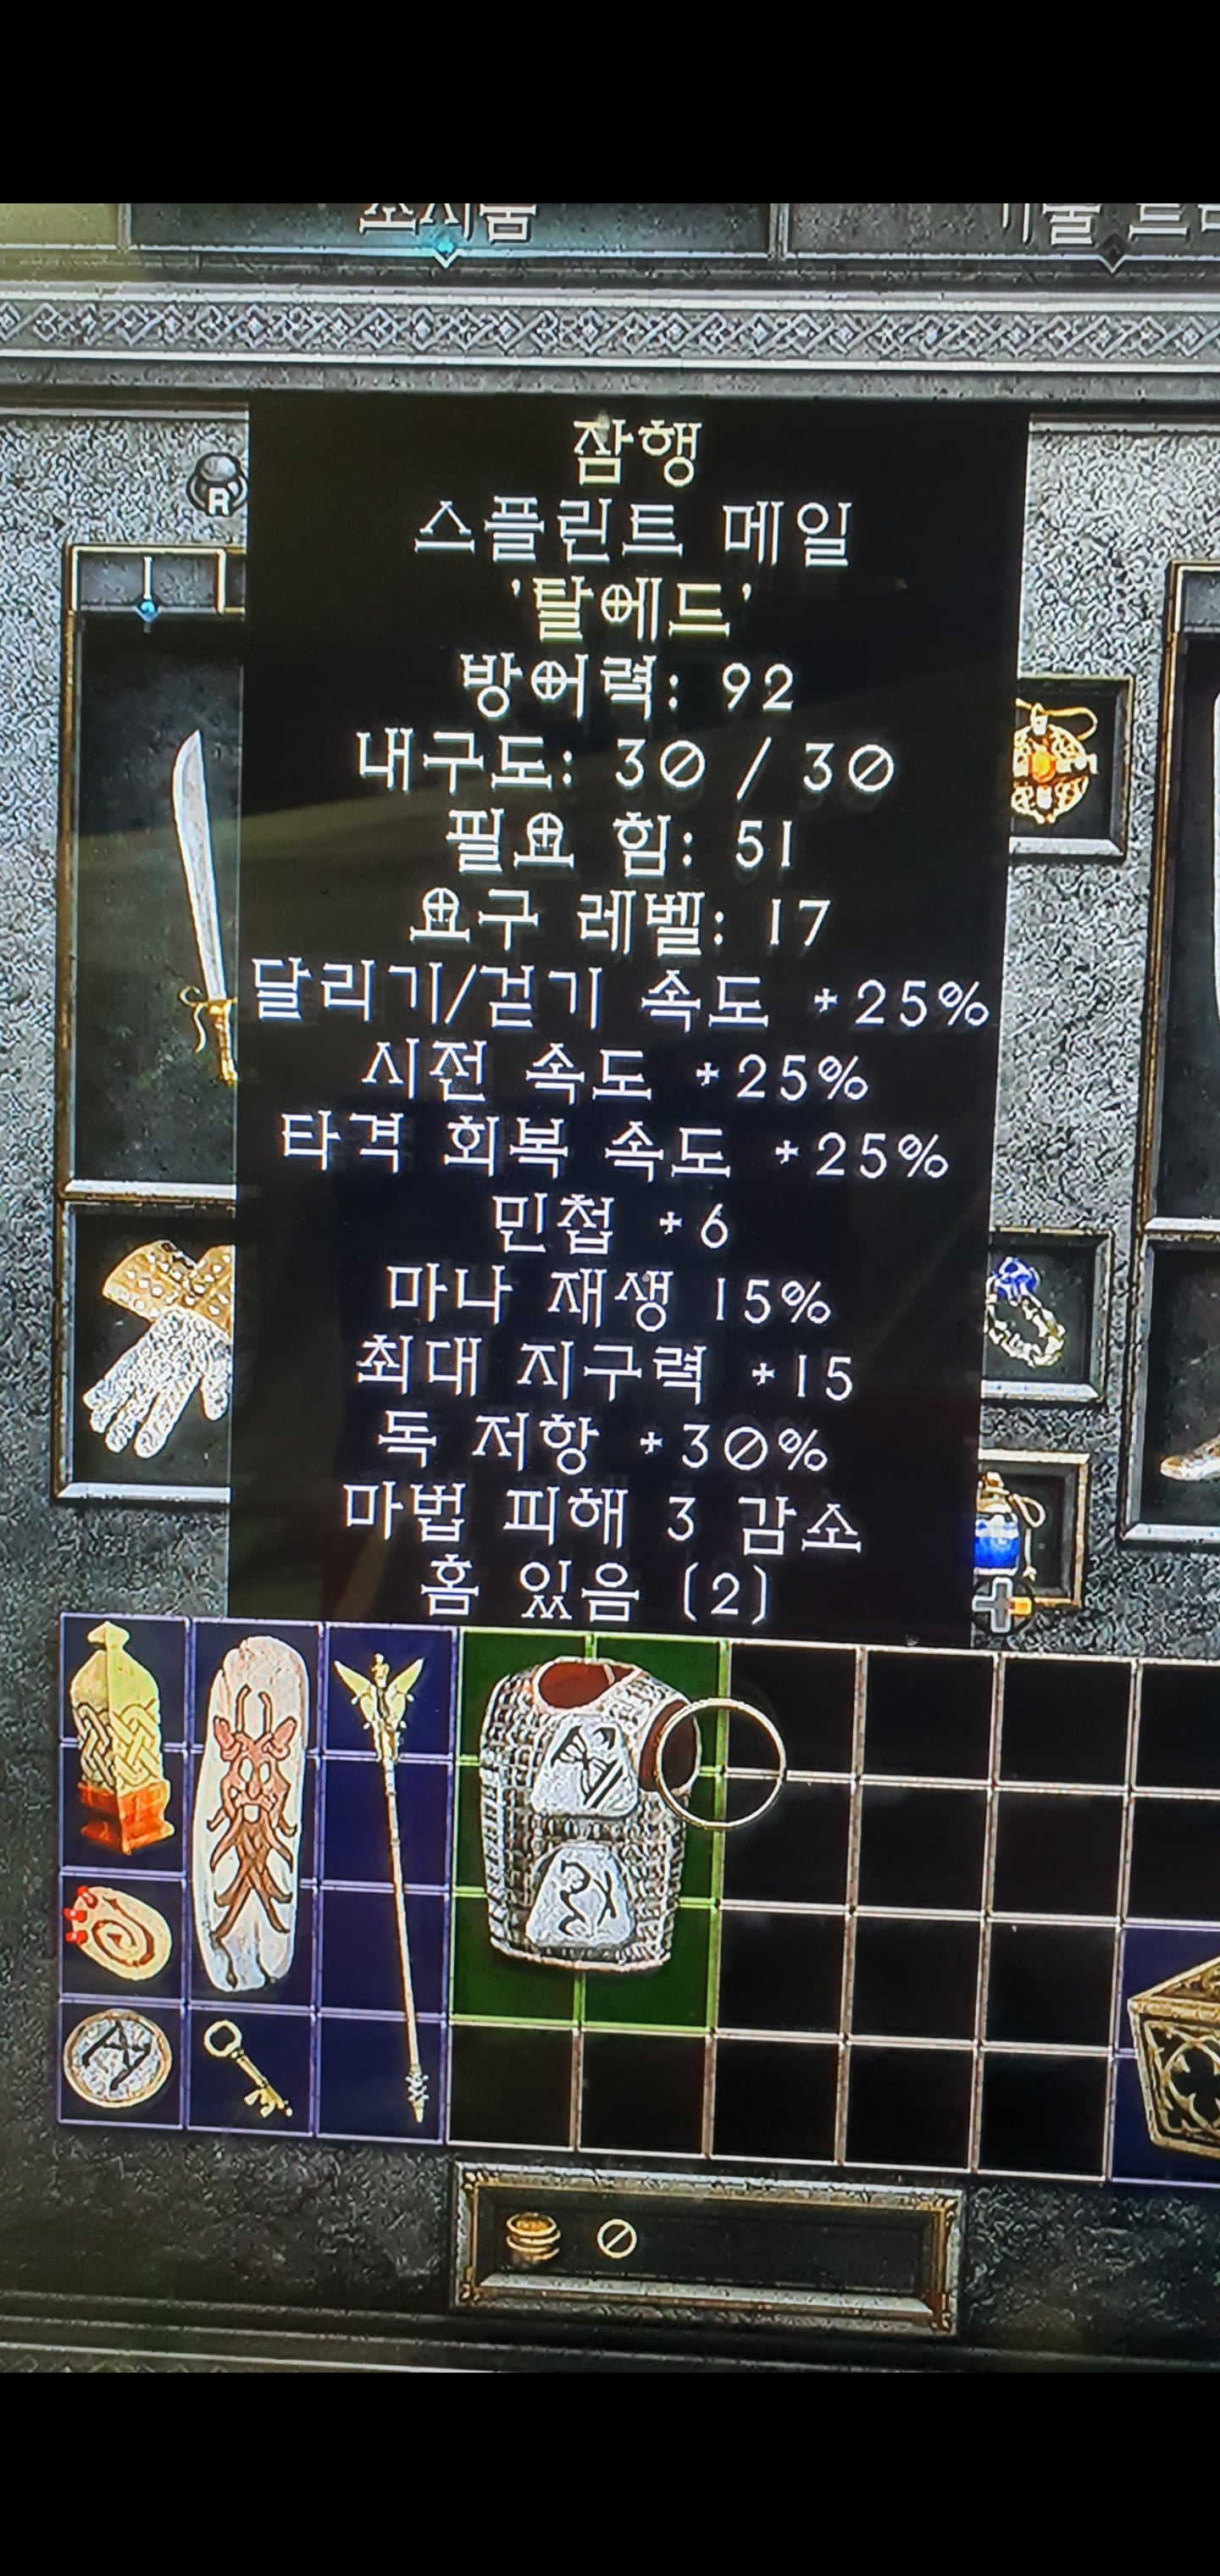 소지품
기술 트리
R
잠행
스플린트 메일
'탈에드'
방어력: 92
내구도: 30 / 30
필요 힘: 51
요구 레벨: 17
달리기/걷기 속도 +25%
시전 속도 +25%
타격 회복 속도 +25%
민첩 +6
마나 재생 15%
최대 지구력 +15
독 저항 +30%
마법 피해 3 감소
홈 있음 (2)
0